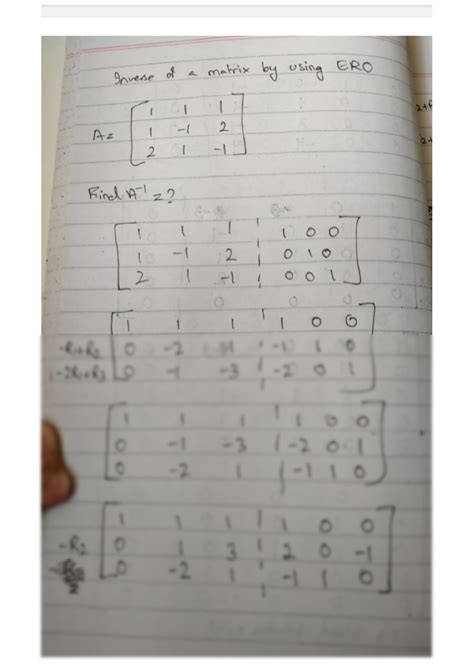 Inverse of a matrix by using ERO
A = [ 1 1 1
1 -1 2
2 1 -1 ]
Find A⁻¹ = ?
[ 1 1 1 ¦ 1 0 0
1 -1 2 ¦ 0 1 0
2 1 -1 ¦ 0 0 1 ]
[ 1 1 1 ¦ 1 0 0
-R1+R2 0 -2 1 ¦ -1 1 0
-2R1+R3 0 -1 -3 ¦ -2 0 1 ]
[ 1 1 1 ¦ 1 0 0
0 -1 -3 ¦ -2 0 1
0 -2 1 ¦ -1 1 0 ]
[ 1 1 1 ¦ 1 0 0
-R2 0 1 3 ¦ 2 0 -1
0 -2 1 ¦ -1 1 0 ]